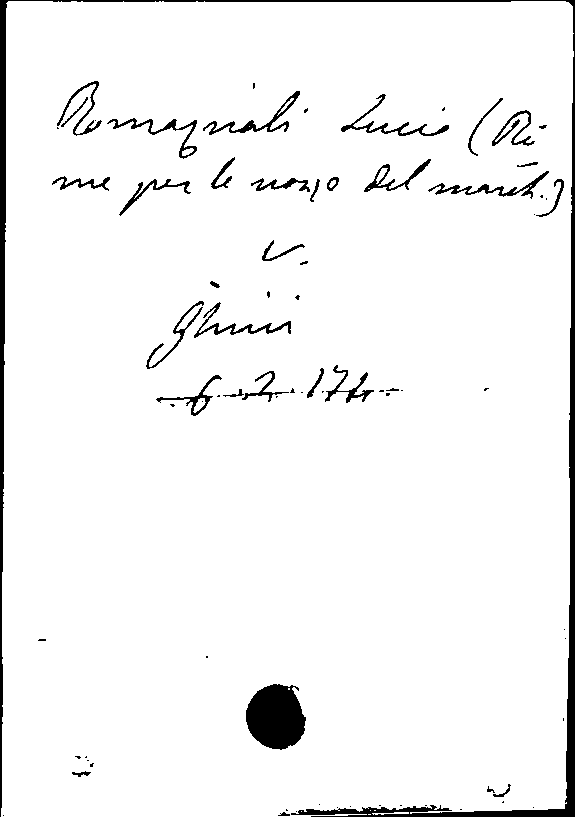 Romagnoli Lucio (Ri
me per le nozze del march.)
v.
Ghini
6. 2. 174.